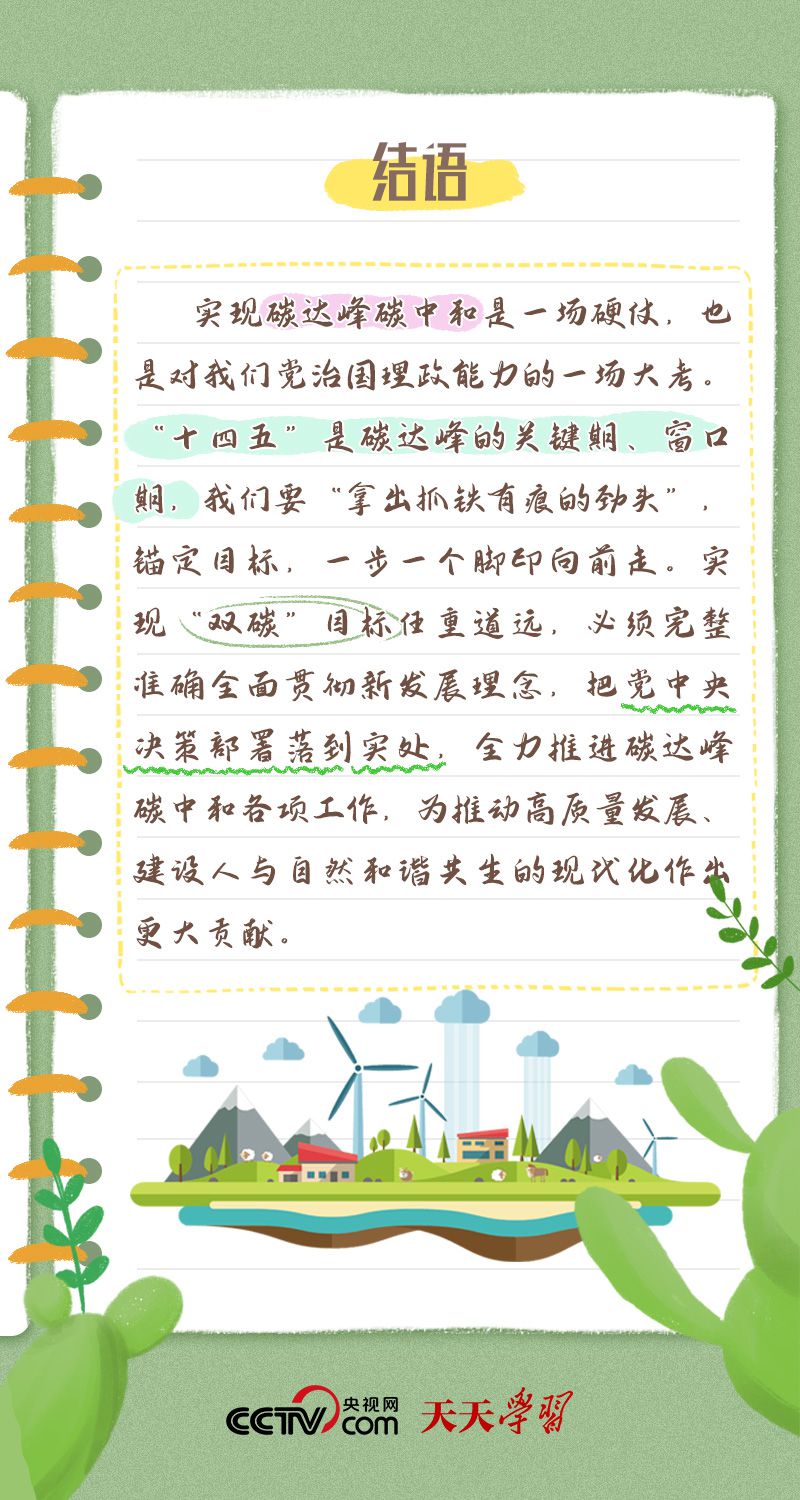 结语
实现碳达峰碳中和是一场硬仗，也
是对我们党治国理政能力的一场大考。
“十四五”是碳达峰的关键期、窗口
期，我们要“拿出抓铁有痕的劲头”，
锚定目标，一步一个脚印向前走。实
现“双碳”目标任重道远，必须完整
准确全面贯彻新发展理念，把党中央
决策部署落到实处，全力推进碳达峰
碳中和各项工作，为推动高质量发展、
建设人与自然和谐共生的现代化作出
更大贡献。
CCTV.com 央视网 天天学習